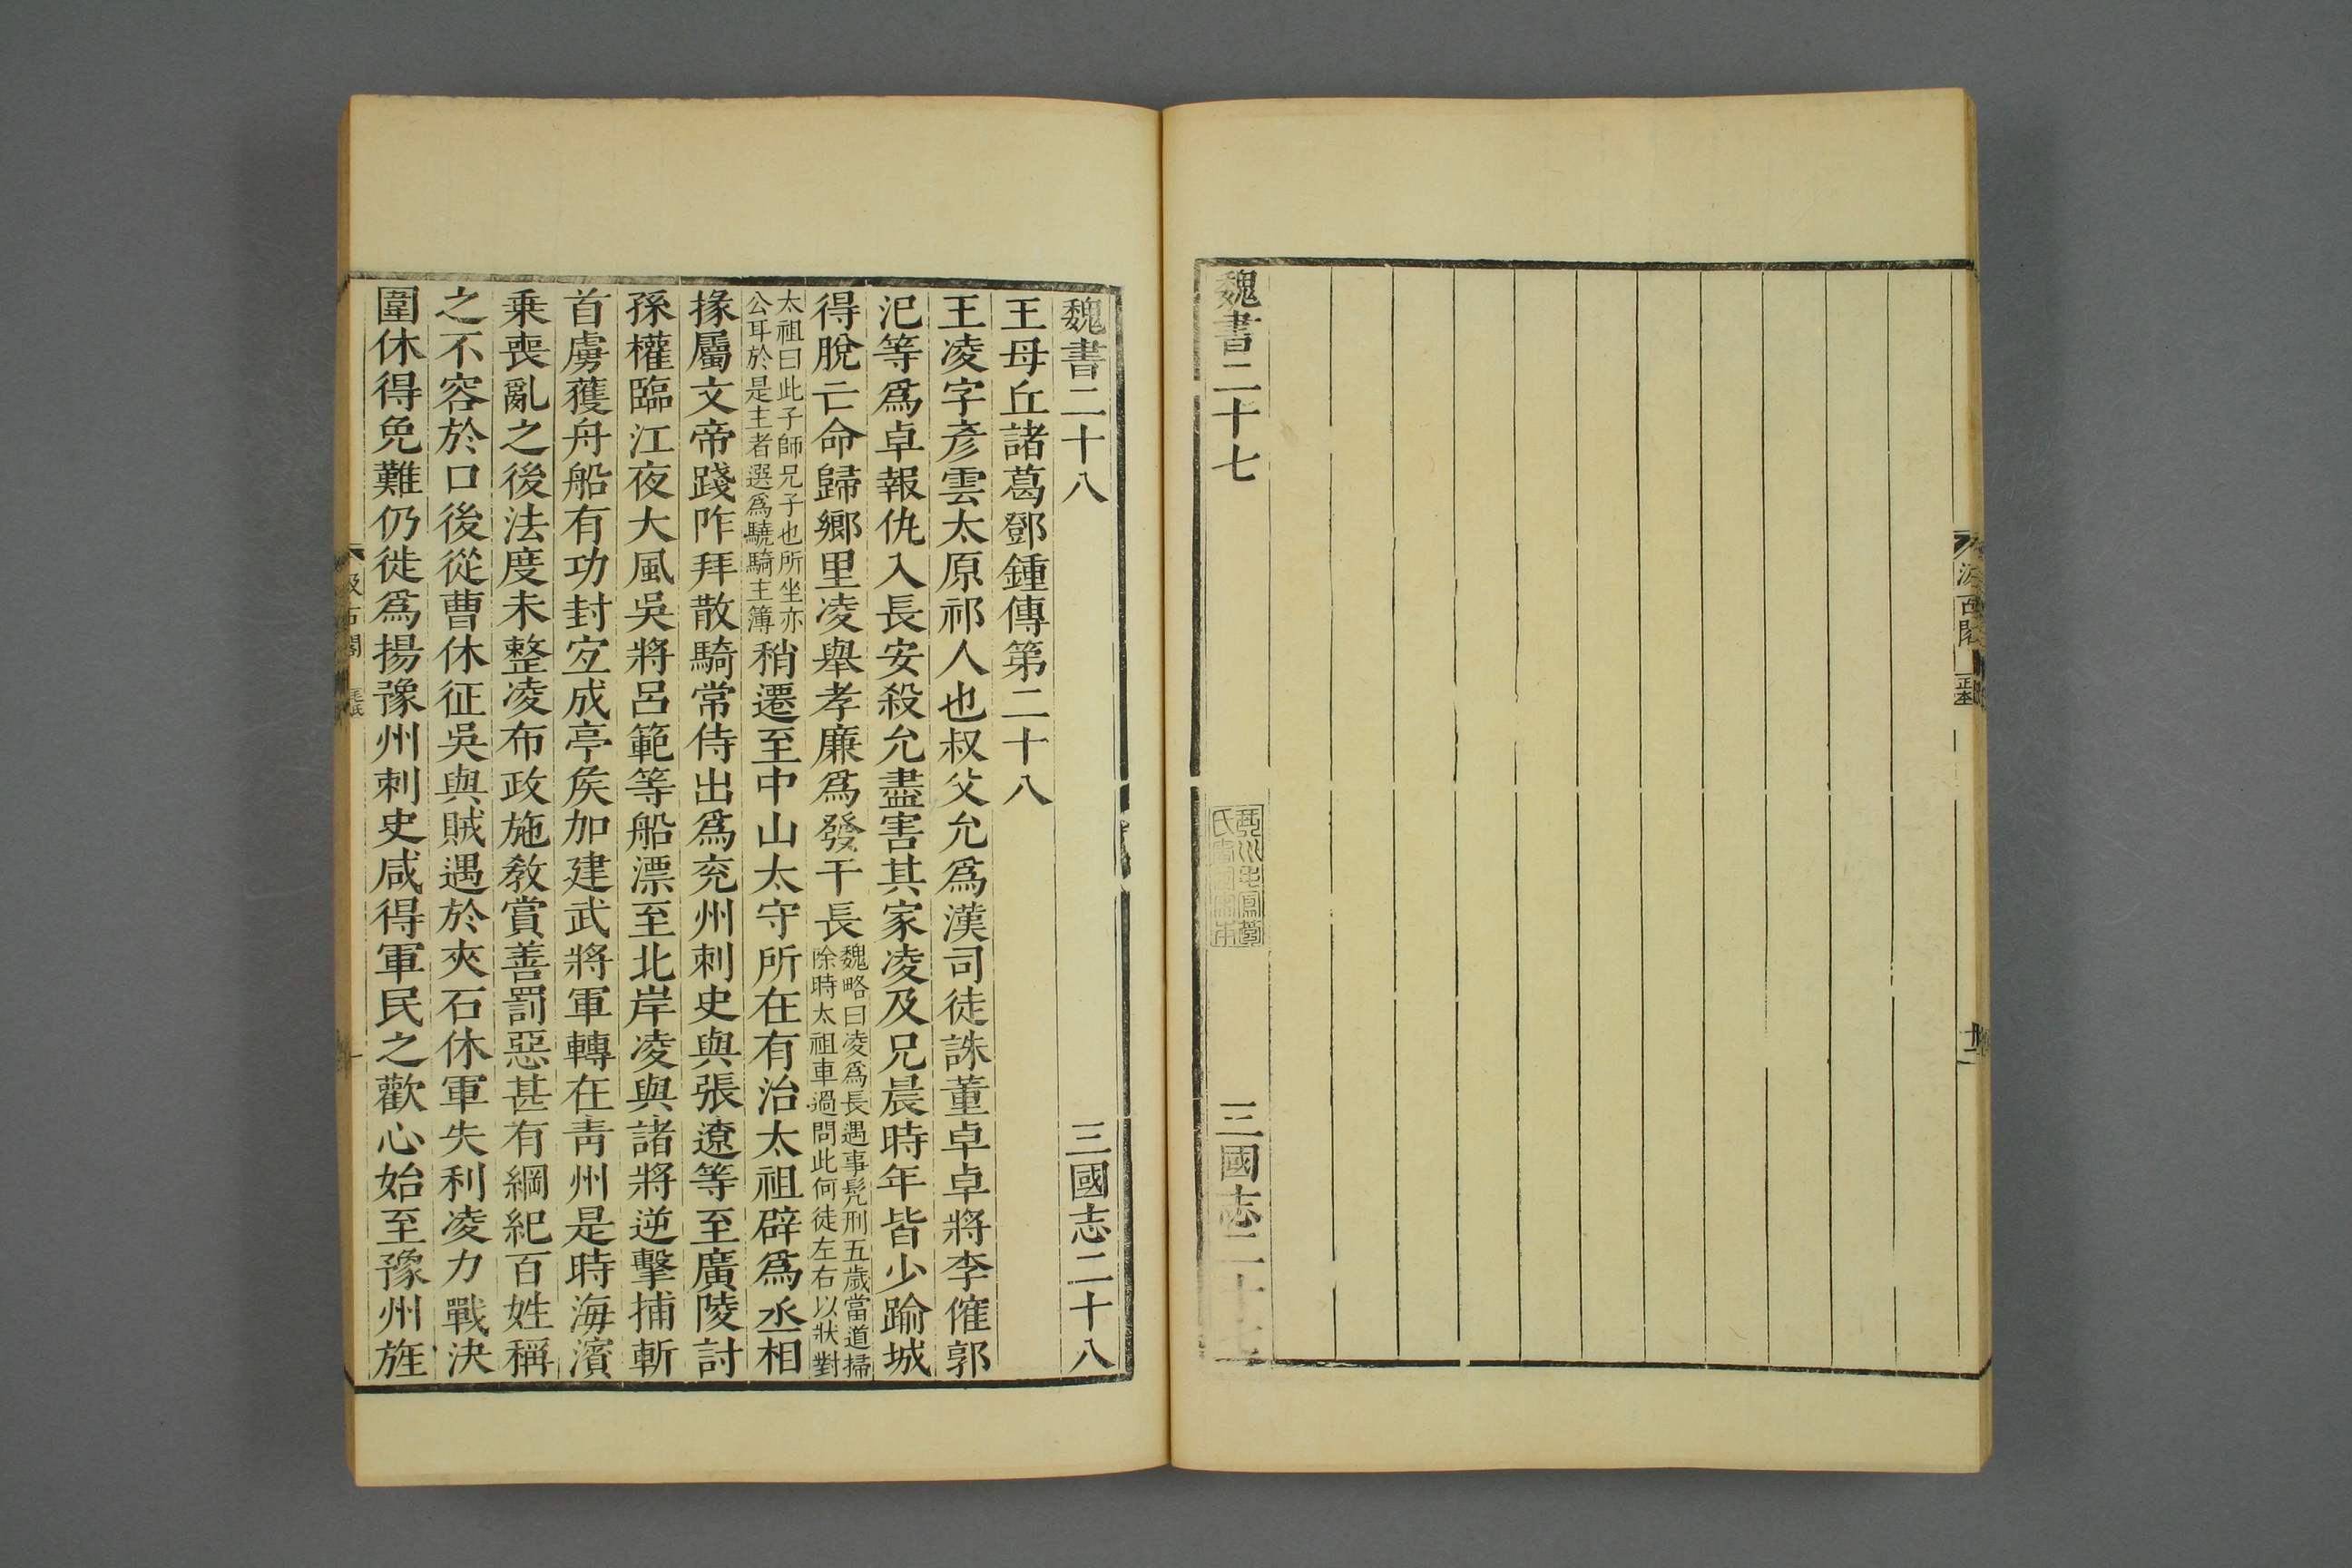 魏書二十七 三國志二十七
魏書二十八 三國志二十八
王母丘諸葛鄧鍾傳第二十八
王凌字彥雲太原祁人也叔父允爲漢司徒誅董卓卓將李傕郭
汜等爲卓報仇入長安殺允盡害其家凌及兄晨時年皆少踰城
得脫亡命歸鄉里凌舉孝廉爲發干長
魏略曰凌爲長遇事髡刑五歲當道掃
除時太祖車過問此何徒左右以狀對
太祖曰此子師兄子也所坐亦
公耳於是主者選爲驍騎主簿
稍遷至中山太守所在有治太祖辟爲丞相
掾屬文帝踐阼拜散騎常侍出爲兖州刺史與張遼等至廣陵討
孫權臨江夜大風吳將呂範等船漂至北岸凌與諸將逆擊捕斬
首虜獲舟船有功封宐成亭侯加建武將軍轉在青州是時海濱
乗喪亂之後法度未整凌布政施敎賞善罰惡甚有綱紀百姓稱
之不容於口後從曹休征吳與賊遇於夾石休軍失利凌力戰決
圍休得免難仍徙爲揚豫州刺史咸得軍民之歡心始至豫州旌